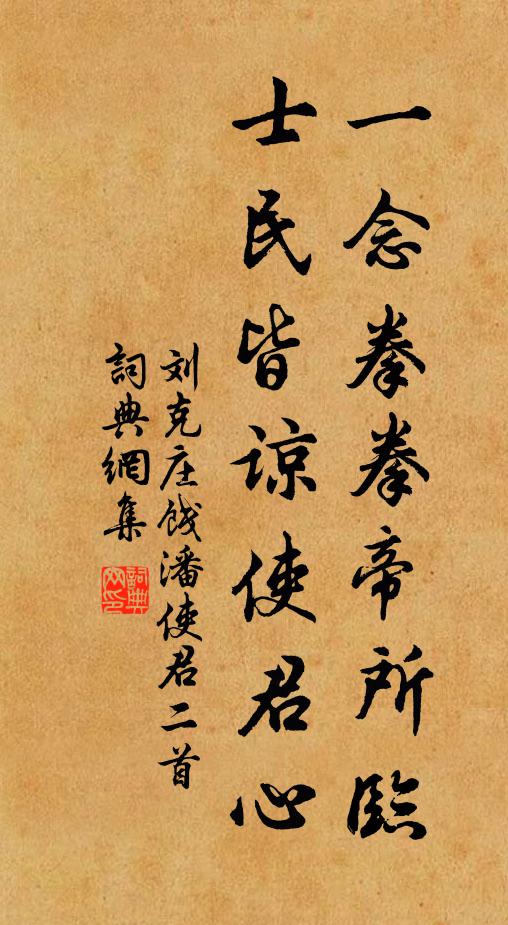 一念拳拳帝所臨
士民皆谅使君心
刘克庄饯潘使君二首
詞典網集
詞典網印